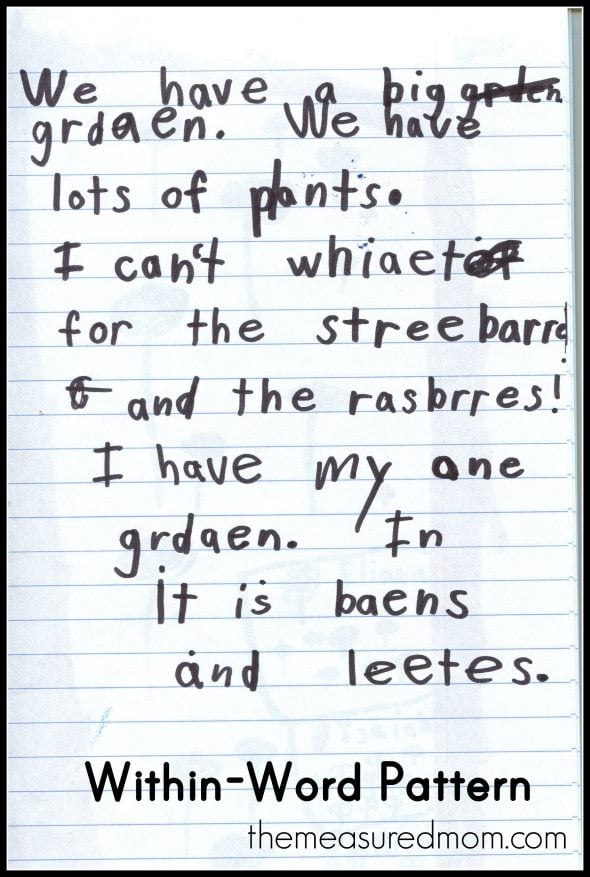 We have a big grden
grdaen. We have
lots of plants.
I can't whiaet
for the stree barrd
and the rasbrres!
I have my one
grdaen. In
it is baens
and leetes.
Within-Word Pattern
themeasuredmom.com